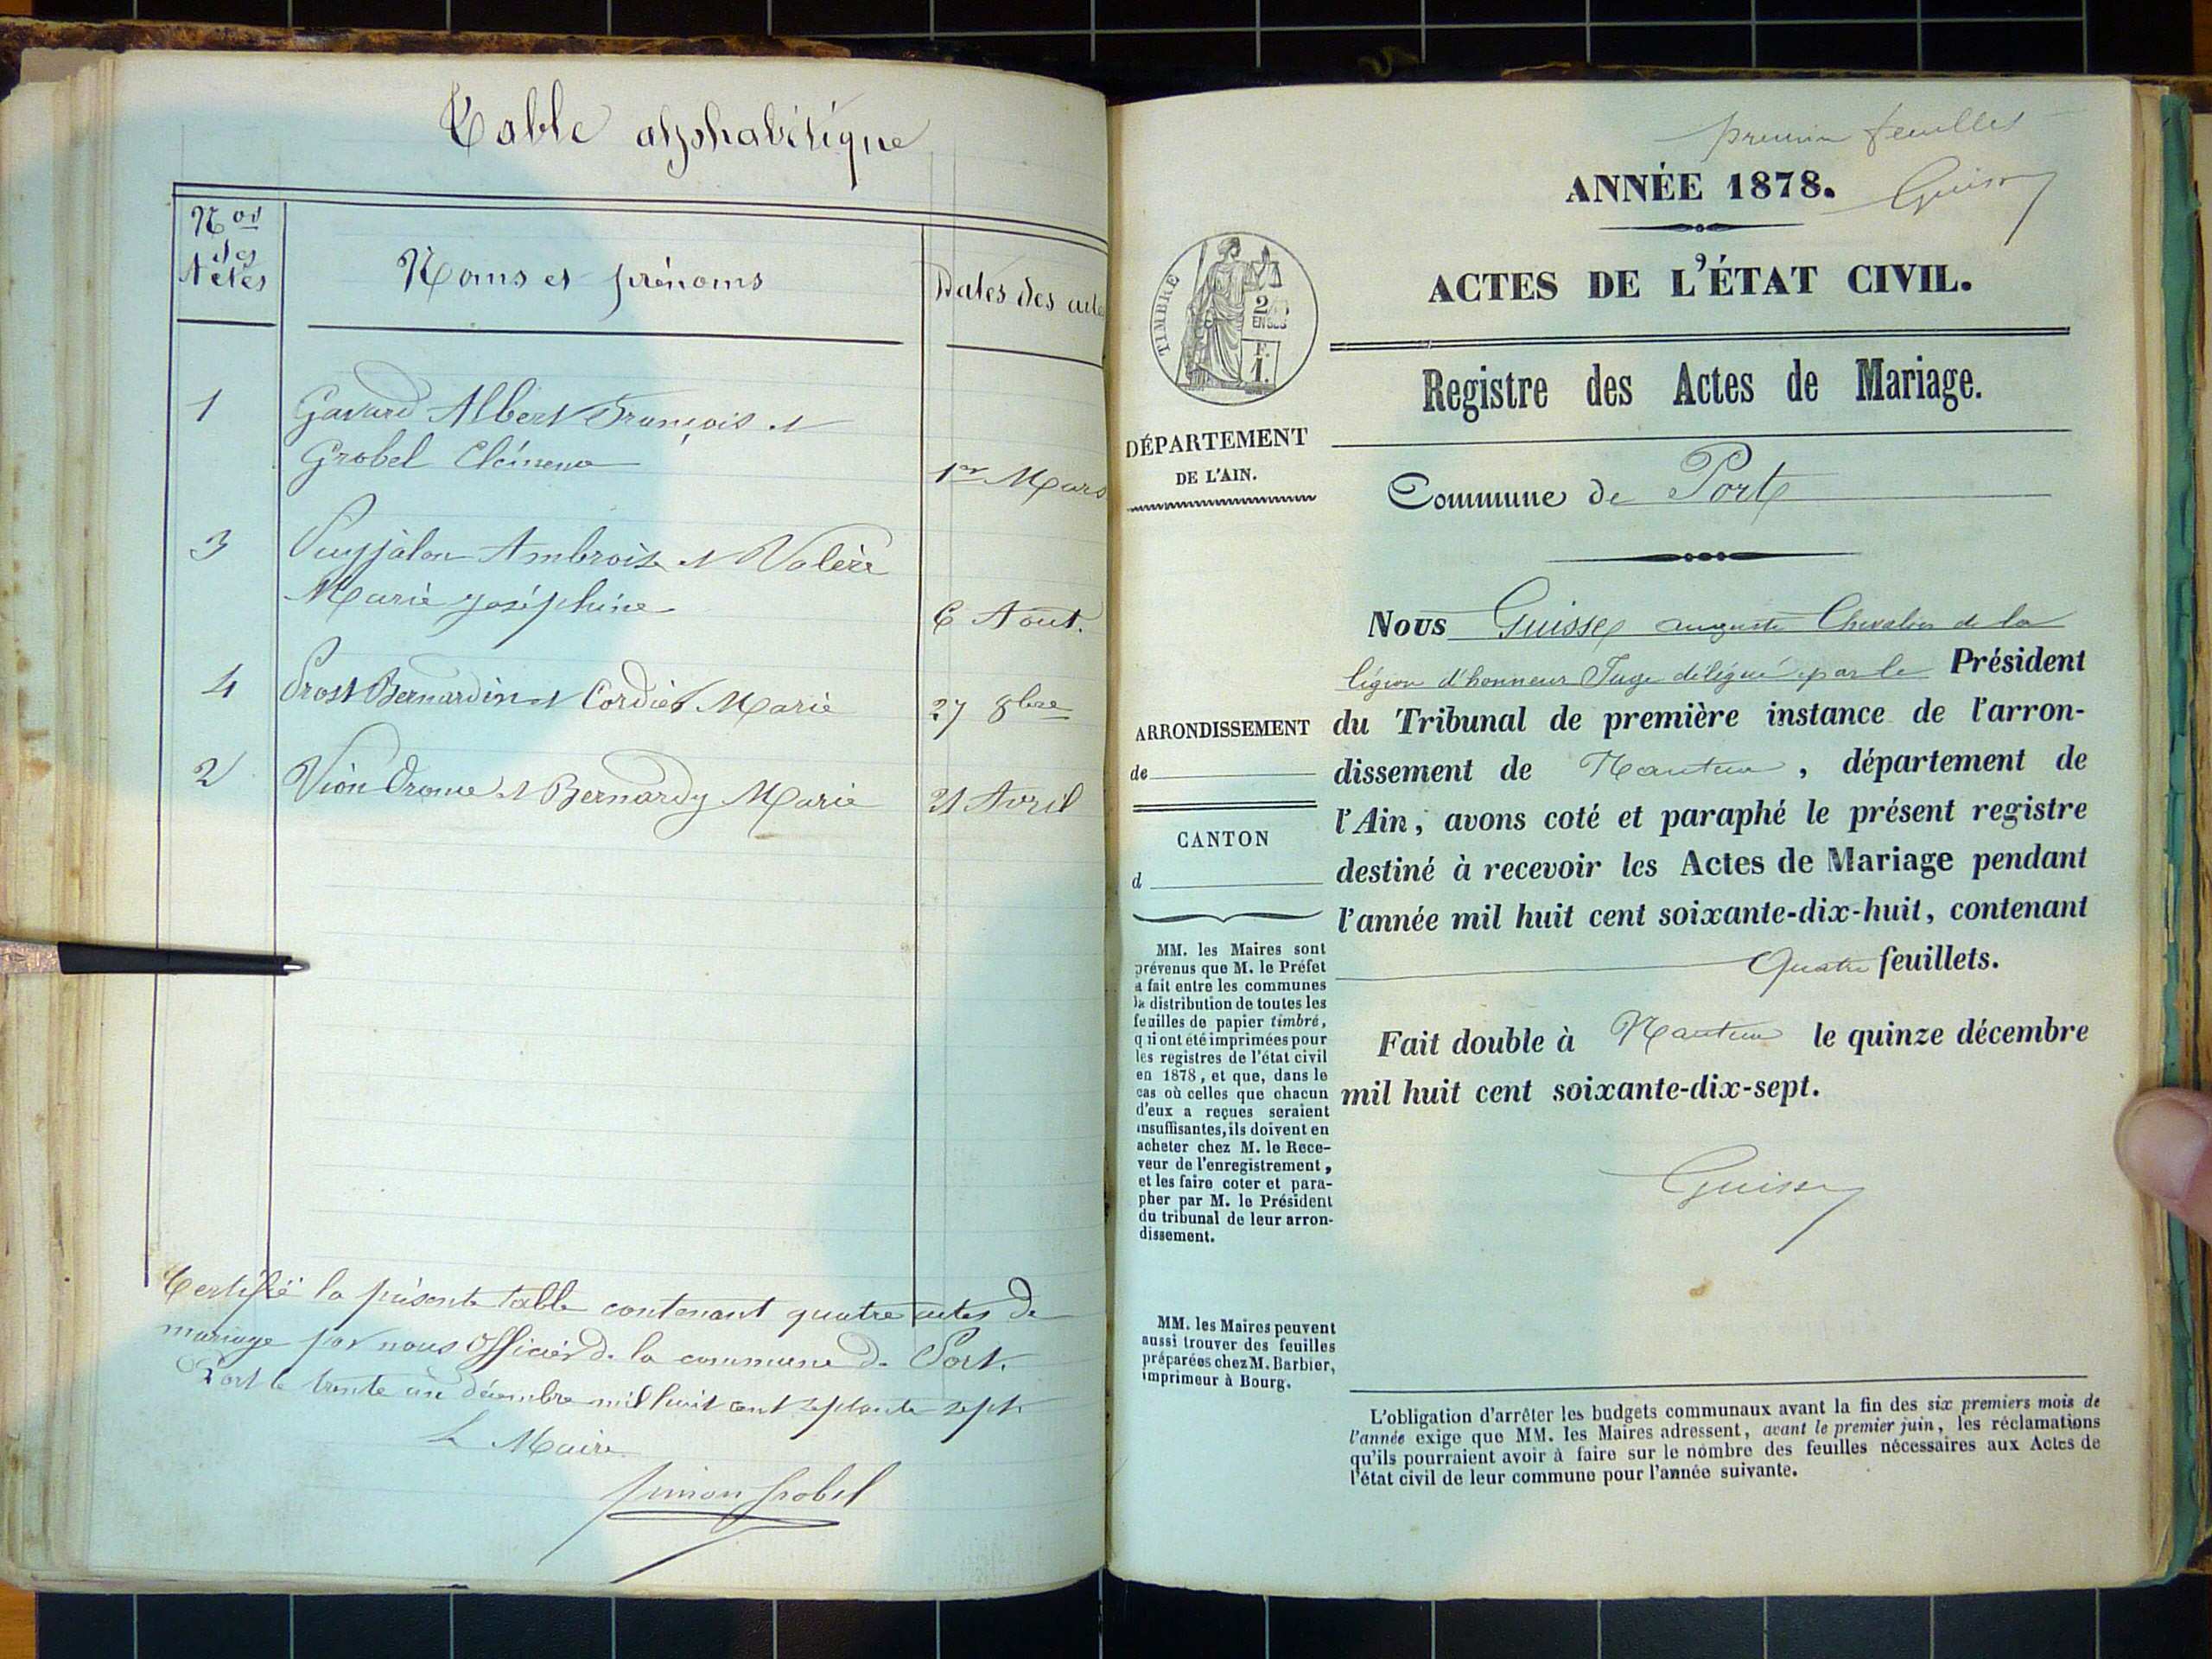 Table alphabétique
Nos
des
Actes
Noms et prénoms
Dates des actes
1
Gavard Albert François et
Grobel Clémence
1er Mars
3
Puyjalon Ambroise et Valère
Marie Joséphine
6 Aout.
4
Prost Bernardin et Cordier Marie
27 8bre
2
Vion et Bernardy Marie
21 Avril
Certifié la présente table contenant quatre actes de
mariage par nous Officier de la commune de Port.
Port le trente un décembre mil huit cent septante sept
Le Maire
Simon Grobel
premier feuillet
Guisse
ANNÉE 1878.
ACTES DE L'ÉTAT CIVIL.
TIMBRE
2/10
EN SUS
F.
1.
Registre des Actes de Mariage.
DÉPARTEMENT
DE L'AIN.
Commune de Port
Nous Guisse auguste Chevalier de la
légion d'honneur Juge délégué par le Président
du Tribunal de première instance de l'arron-
dissement de Nantua, département de
l'Ain, avons coté et paraphé le présent registre
destiné à recevoir les Actes de Mariage pendant
l'année mil huit cent soixante-dix-huit, contenant
Quatre feuillets.
Fait double à Nantua le quinze décembre
mil huit cent soixante-dix-sept.
Guisse
ARRONDISSEMENT
de
CANTON
d
MM. les Maires sont
prévenus que M. le Préfet
a fait entre les communes
la distribution de toutes les
feuilles de papier timbré,
qui ont été imprimées pour
les registres de l'état civil
en 1878, et que, dans le
cas où celles que chacun
d'eux a reçues seraient
insuffisantes, ils doivent en
acheter chez M. le Rece-
veur de l'enregistrement,
et les faire coter et para-
pher par M. le Président
du tribunal de leur arron-
dissement.
MM. les Maires peuvent
aussi trouver des feuilles
préparées chez M. Barbier,
imprimeur à Bourg.
L'obligation d'arrêter les budgets communaux avant la fin des six premiers mois de
l'année exige que MM. les Maires adressent, avant le premier juin, les réclamations
qu'ils pourraient avoir à faire sur le nombre des feuilles nécessaires aux Actes de
l'état civil de leur commune pour l'année suivante.